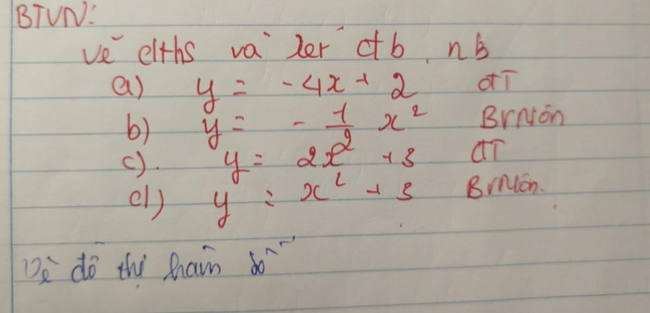 BTVN:
Vẽ đths và xét đb, nb
a) y = -4x + 2 ĐT
b) y = - 1/2 x²
c). y = 2x² + 3 ĐT
d) y = x² + 3
Vẽ đồ thị hàm số